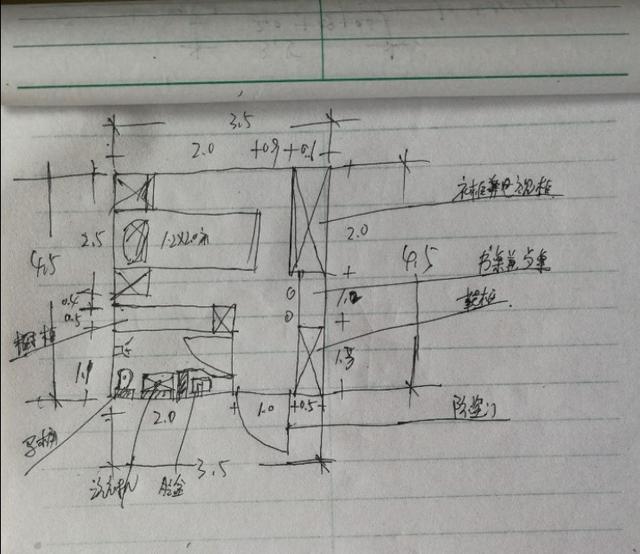 3.5
2.0 0.9 0.6
衣柜兼电视柜
2.5 1.2x2.0米 2.0
4.5 4.5
书桌兼餐桌
0.4 1.2
鞋柜
0.5
橱柜
1.3
1.1
2.0 1.0 0.5
防盗门
3.5
洗衣机 脸盆